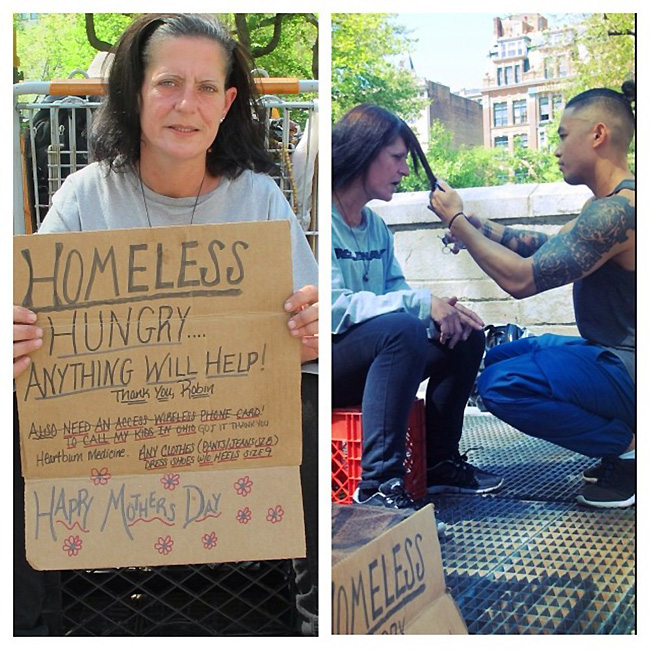 HOMELESS
HUNGRY....
ANYTHING WILL HELP!
Thank You, Robin
ALSO NEED AN ACCESS WIRELESS PHONE CARD!
TO CALL MY KIDS IN OHIO GOT IT THANK YOU
Heartburn Medicine. ANY CLOTHES (PANTS/JEANS SZ 8)
DRESS SHOES W/O HEELS SIZE 9
HAPPY MOTHERS DAY
HOMELESS